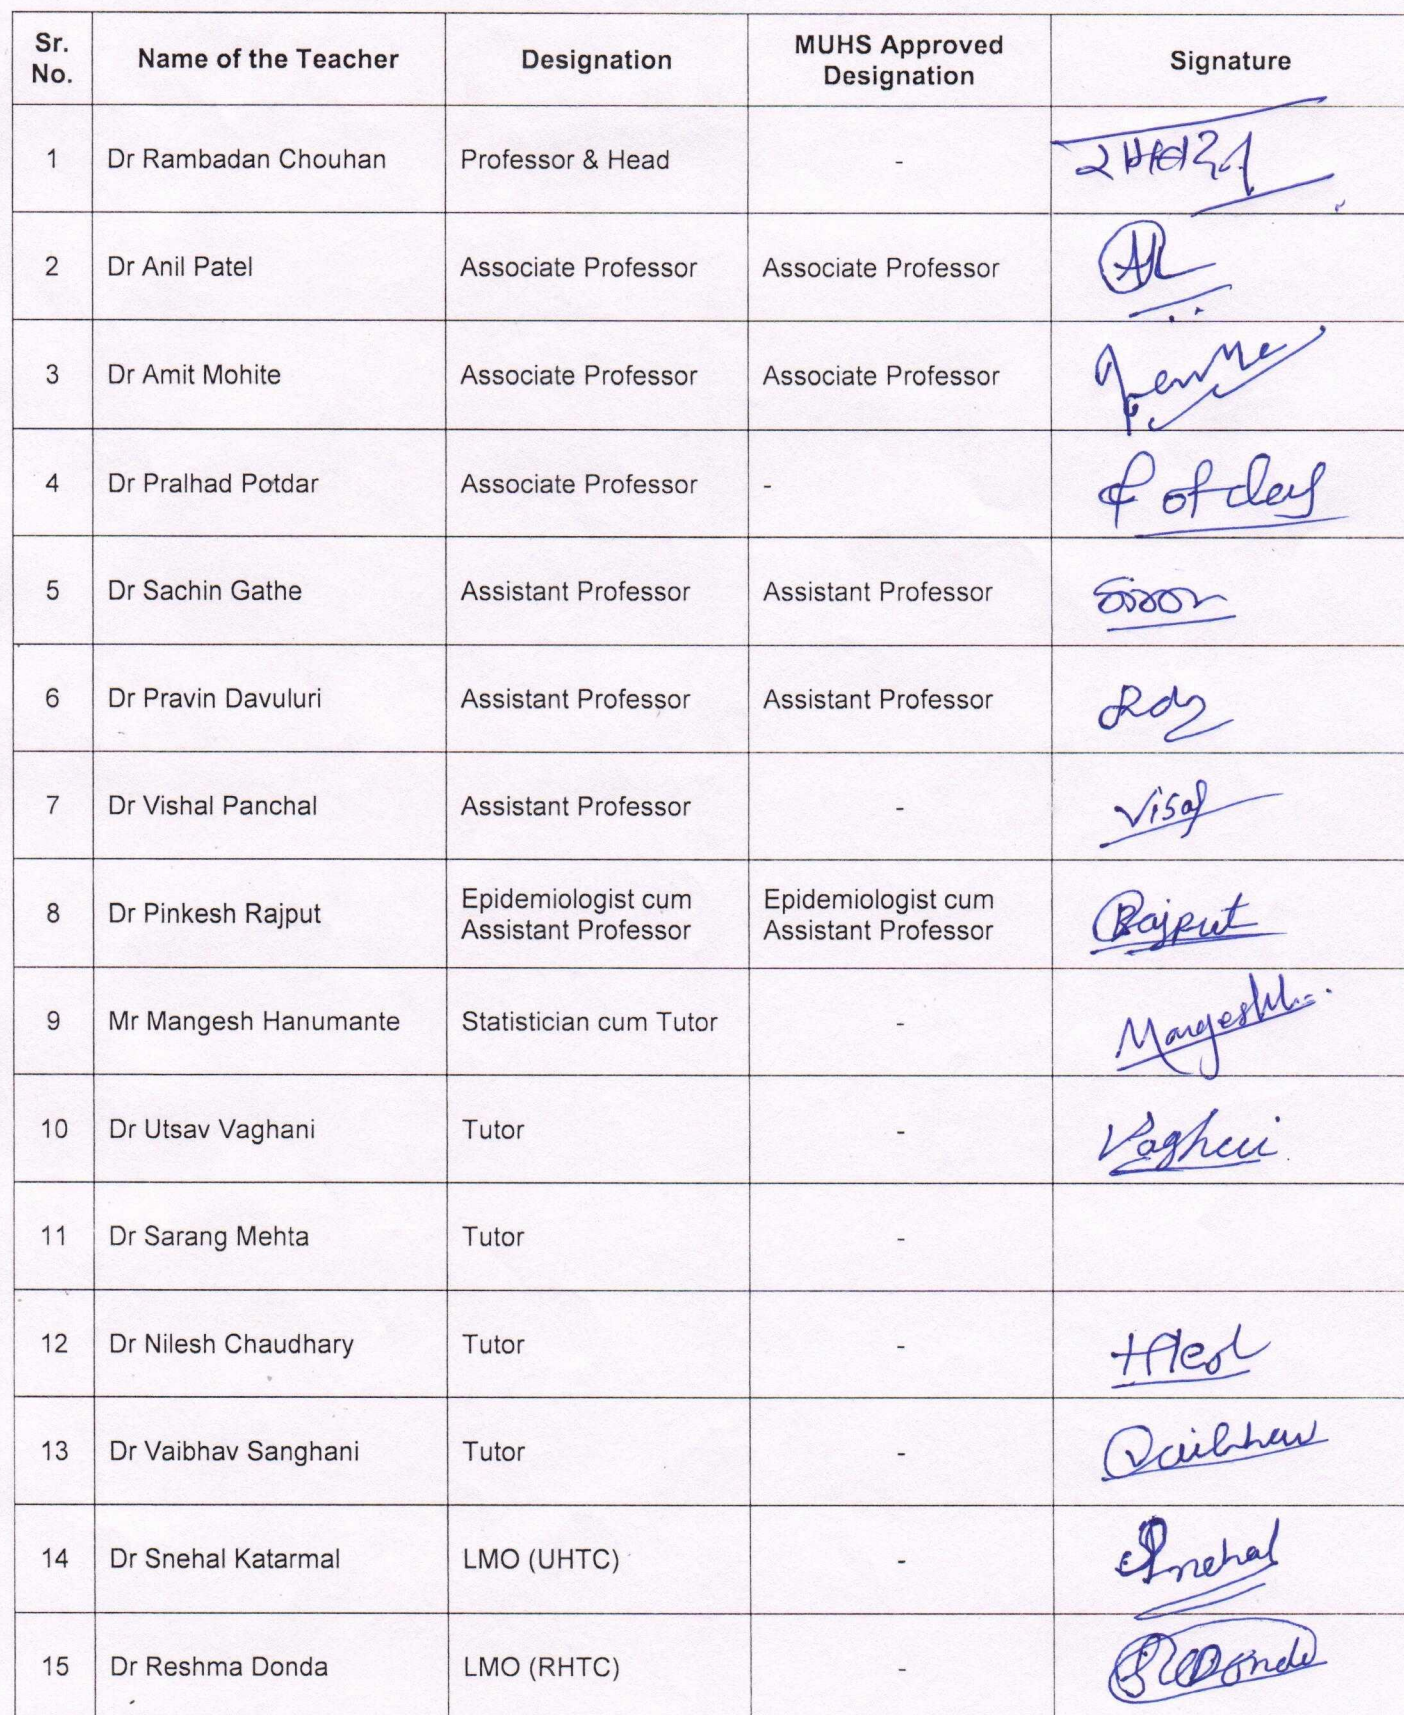 Sr. No. Name of the Teacher Designation MUHS Approved Designation Signature
1 Dr Rambadan Chouhan Professor & Head - रामबदन
2 Dr Anil Patel Associate Professor Associate Professor
3 Dr Amit Mohite Associate Professor Associate Professor
4 Dr Pralhad Potdar Associate Professor -
5 Dr Sachin Gathe Assistant Professor Assistant Professor
6 Dr Pravin Davuluri Assistant Professor Assistant Professor
7 Dr Vishal Panchal Assistant Professor - Visal
8 Dr Pinkesh Rajput Epidemiologist cum Assistant Professor Epidemiologist cum Assistant Professor Rajput
9 Mr Mangesh Hanumante Statistician cum Tutor -
10 Dr Utsav Vaghani Tutor -
11 Dr Sarang Mehta Tutor -
12 Dr Nilesh Chaudhary Tutor -
13 Dr Vaibhav Sanghani Tutor - Vaibhav
14 Dr Snehal Katarmal LMO (UHTC) - Snehal
15 Dr Reshma Donda LMO (RHTC) -